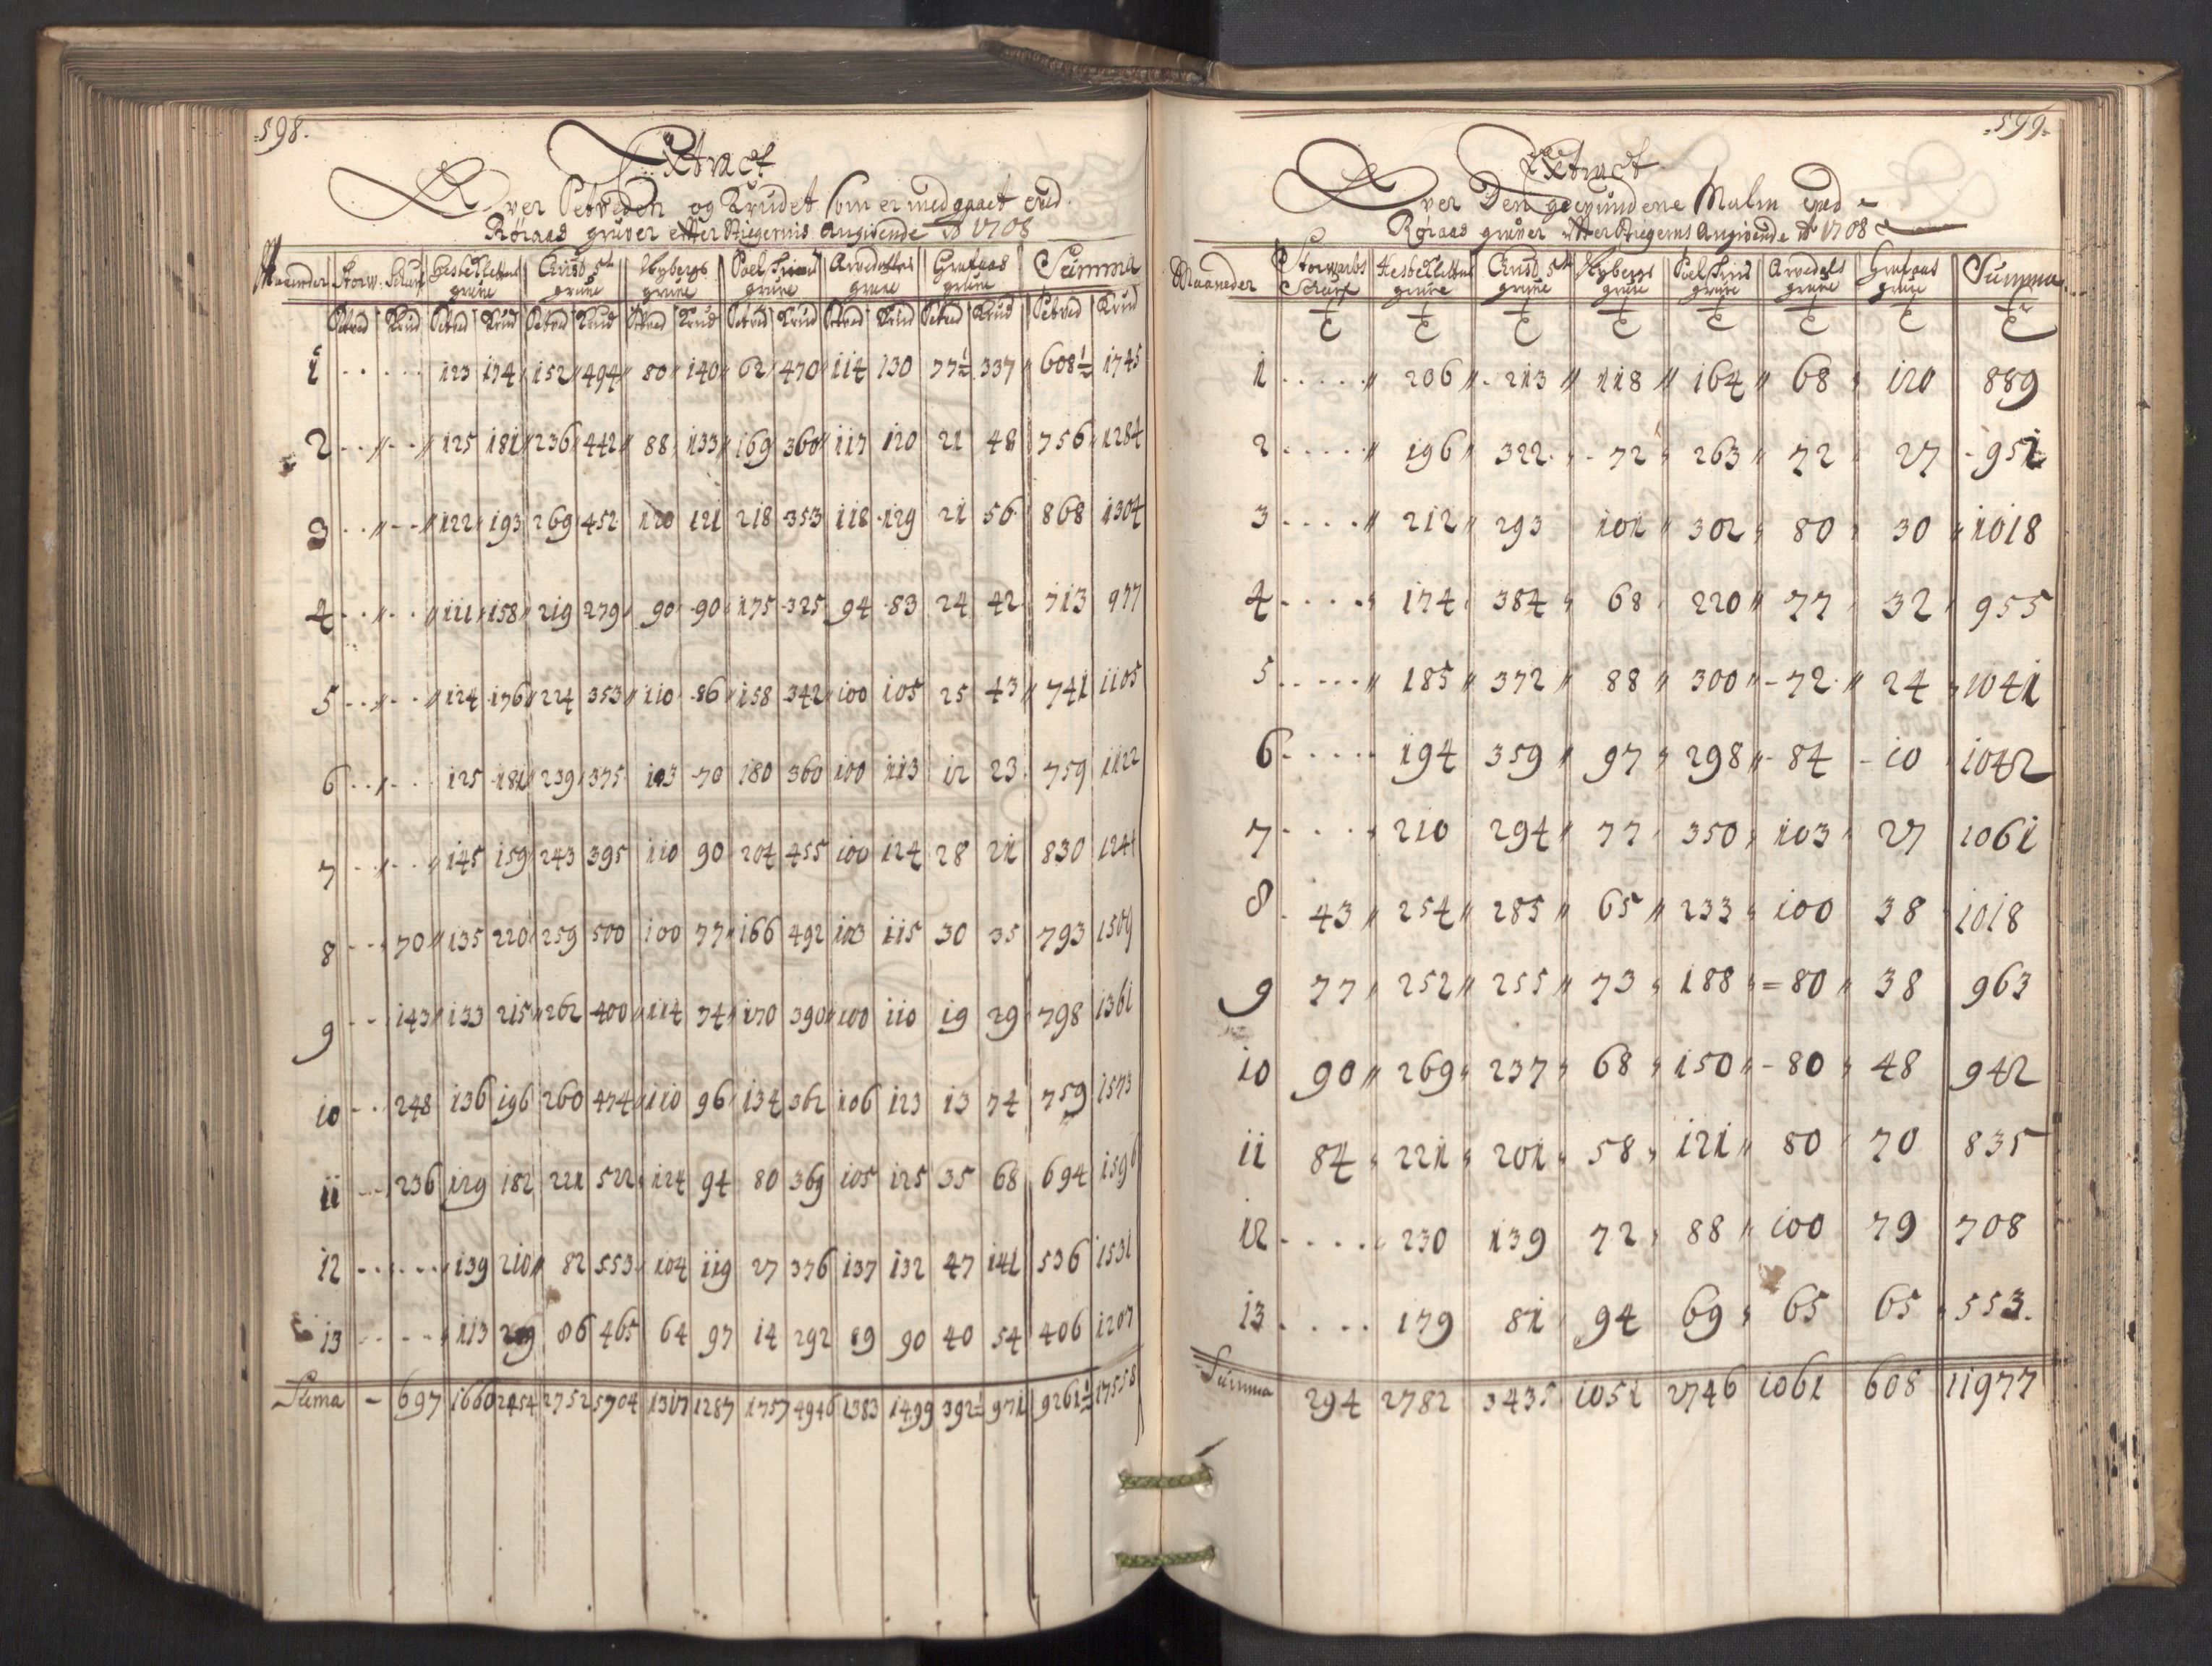 598.
Extract
Over Setveden og Krudet som er medgaaet ved
Røraas gruver efter Stiegernis Angivende Ao 1708
Maaneder Storw: Schurf Hestekletten grube Christ: 5th grube Nybergs grube Poel Friis grube Arvedals grube Graaaas grube Summa
Setved Krud Setved Krud Setved Krud Setved Krud Setved Krud Setved Krud Setved Krud Setved Krud
1 . . . . . 123 174 152 494 80 140 62 470 114 130 77½ 337 608½ 1745
2 . . . . 125 181 236 442 88 133 169 360 117 120 21 48 756 1284
3 . . . . 122 193 269 452 120 121 218 353 118 129 21 56 868 1304
4 . . . . 111 158 219 279 90 90 175 325 94 83 24 42 713 977
5 . . . . 124 176 224 353 110 86 158 342 100 105 25 43 741 1105
6 . . . . 125 181 239 375 103 70 180 360 100 113 12 23 759 1122
7 . . . . 145 159 243 395 110 90 204 455 100 124 28 21 830 1244
8 - - 70 135 220 259 500 100 77 166 492 103 115 30 35 793 1509
9 - - 143 133 215 262 400 114 74 170 390 100 110 19 29 798 1361
10 - - 248 136 196 260 474 110 96 134 362 106 123 13 74 759 1573
11 - - 236 129 182 221 522 124 94 80 369 105 125 35 68 694 1596
12 - . . . . 139 210 82 553 104 119 27 376 137 132 47 141 536 1531
13 - - - - 113 209 86 465 64 97 14 292 89 90 40 54 406 1207
Suma - 697 1660 2454 2752 5704 1317 1287 1757 4946 1383 1499 392½ 971 9261½ 17558
599.
Extract
Over Den gewundene Malm ved
Røraas gruver efter Stiegerns Angivende Ao 1708
Maaneder Storwarts Schurf Hestekletten grube Christ: 5th grube Nybergs grube Poel Friis grube Arvedals grube Graaaas grube Summa
1 . . . . . 206 213 118 164 68 120 889
2 . . . . . 196 322 72 263 72 27 951
3 . . . . 212 293 101 302 80 30 1018
4 . . . . 174 384 68 220 77 32 955
5 . . . . . 185 372 88 300 72 24 1041
6 . . . . . 194 359 97 298 84 10 1042
7 . . . . 210 294 77 350 103 27 1061
8 43 254 285 65 233 100 38 1018
9 77 252 255 73 188 80 38 963
10 90 269 237 68 150 80 48 942
11 84 221 201 58 121 80 70 835
12 . . . . 230 139 72 88 100 79 708
13 . . . . 179 81 94 69 65 65 553.
Summa 294 2782 3435 1051 2746 1061 608 11977